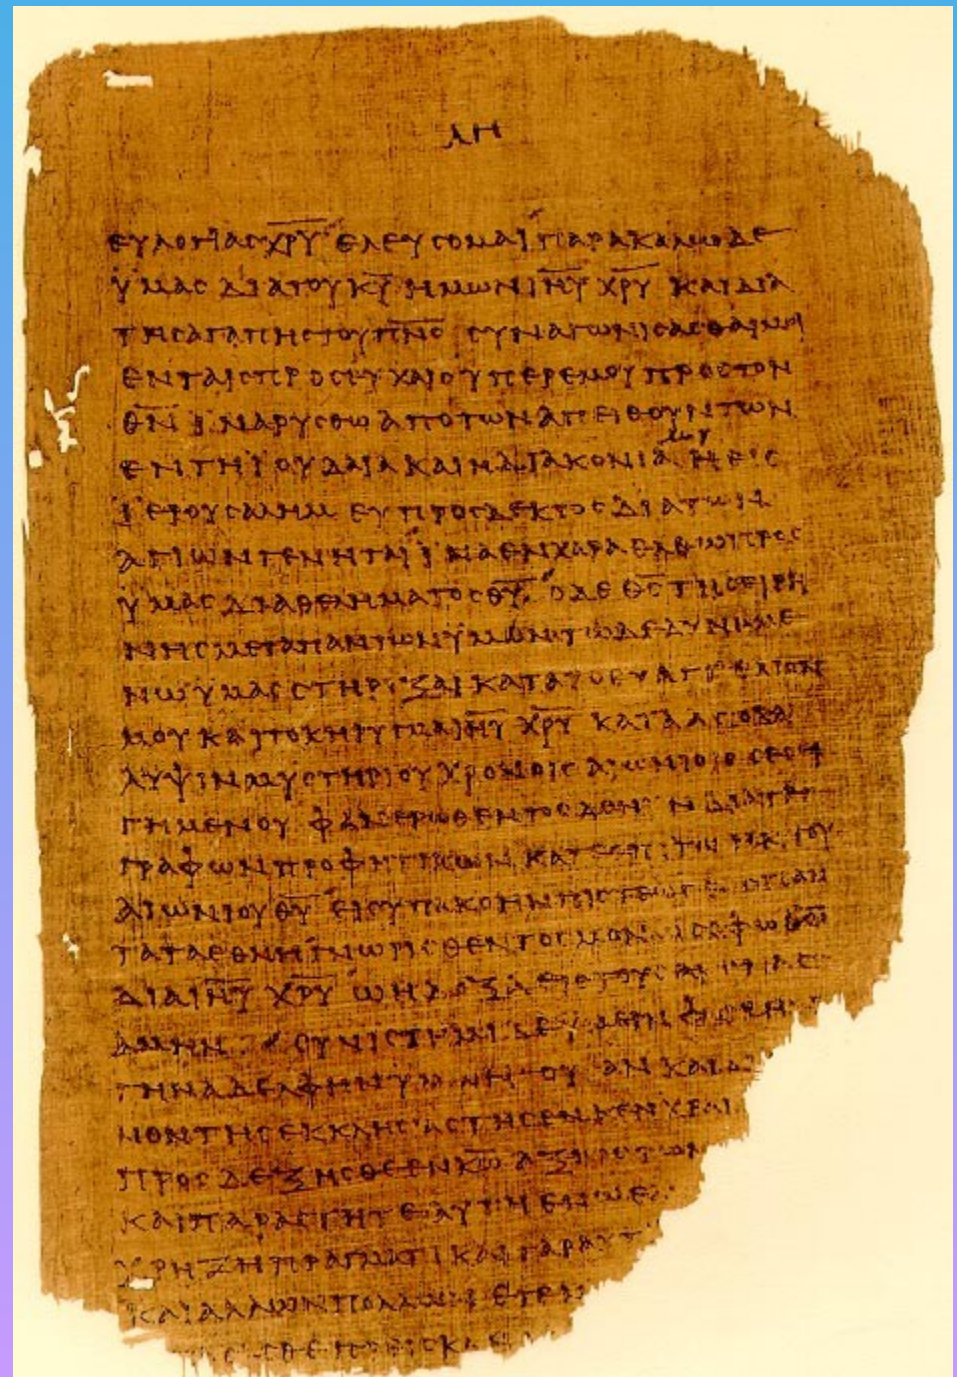 ΛΗ
ΕΥΛΟΓΙΑϹ Χ̅Ρ̅Υ̅ ΕΛΕΥϹΟΜΑΙ ΠΑΡΑΚΑΛΩ ΔΕ
ΫΜΑϹ ΔΙΑ ΤΟΥ Κ̅Υ̅ ΗΜΩΝ Ι̅Η̅Υ̅ Χ̅Ρ̅Υ̅ ΚΑΙ ΔΙΑ
ΤΗϹ ΑΓΑΠΗϹ ΤΟΥ Π̅Ν̅Ϲ̅ ϹΥΝΑΓΩΝΙϹΑϹΘΑΙ ΜΟΙ
ΕΝ ΤΑΙϹ ΠΡΟϹΕΥΧΑΙϹ ΥΠΕΡ ΕΜΟΥ ΠΡΟϹ ΤΟΝ
Θ̅Ν̅ ΪΝΑ ΡΥϹΘΩ ΑΠΟ ΤΩΝ ΑΠΕΙΘΟΥΝΤΩΝ
ΕΝ ΤΗ ΙΟΥΔΑΙΑ ΚΑΙ Η ΔΙΑΚΟΝΙΑ ΜΟΥ Η ΕΙϹ
ΪΕΡΟΥϹΑΛΗΜ ΕΥΠΡΟϹΔΕΚΤΟϹ ΔΙΑ ΤΩΝ
ΑΓΙΩΝ ΓΕΝΗΤΑΙ ΪΝΑ ΕΝ ΧΑΡΑ ΕΛΘΩ ΠΡΟϹ
ΫΜΑϹ ΔΙΑ ΘΕΛΗΜΑΤΟϹ Θ̅Υ̅ Ο ΔΕ Θ̅Ϲ̅ ΤΗϹ ΕΙΡΗ
ΝΗϹ ΜΕΤΑ ΠΑΝΤΩΝ ΫΜΩΝ ΤΩ ΔΕ ΔΥΝΑΜΕ
ΝΩ ΫΜΑϹ ϹΤΗΡΙΞΑΙ ΚΑΤΑ ΤΟ ΕΥΑΓΓΕΛΙΟΝ
ΜΟΥ ΚΑΙ ΤΟ ΚΗΡΥΓΜΑ Ι̅Η̅Υ̅ Χ̅Ρ̅Υ̅ ΚΑΤΑ ΑΠΟΚΑ
ΛΥΨΙΝ ΜΥϹΤΗΡΙΟΥ ΧΡΟΝΟΙϹ ΑΙΩΝΙΟΙϹ ϹΕϹΙ
ΓΗΜΕΝΟΥ ΦΑΝΕΡΩΘΕΝΤΟϹ ΔΕ ΝΥΝ ΔΙΑ ΤΕ
ΓΡΑΦΩΝ ΠΡΟΦΗΤΙΚΩΝ ΚΑΤ ΕΠΙΤΑΓΗΝ ΤΟΥ
ΑΙΩΝΙΟΥ Θ̅Υ̅ ΕΙϹ ΥΠΑΚΟΗΝ ΠΙϹΤΕΩϹ ΕΙϹ ΠΑΝ
ΤΑ ΤΑ ΕΘΝΗ ΓΝΩΡΙϹΘΕΝΤΟϹ ΜΟΝΩ ϹΟΦΩ Θ̅Ω̅
ΔΙΑ Ι̅Η̅Υ̅ Χ̅Ρ̅Υ̅ Ω Η ΔΟΞΑ ΕΙϹ ΤΟΥϹ ΑΙΩΝΑϹ
ΑΜΗΝ ϹΥΝΙϹΤΗΜΙ ΔΕ ΥΜΙΝ ΦΟΙΒΗΝ
ΤΗΝ ΑΔΕΛΦΗΝ ΥΜΩΝ ΟΥϹΑΝ ΚΑΙ ΔΙΑ
ΚΟΝ ΤΗϹ ΕΚΚΛΗϹΙΑϹ ΤΗϹ ΕΝ ΚΕΝΧΡΕΑΙ
ΠΡΟϹΔΕΞΗϹΘΕ ΕΝ Κ̅Ω̅ ΑΞΙΩϹ ΤΩΝ
ΚΑΙ ΠΑΡΑϹΤΗΤΕ ΑΥΤΗ ΕΝ Ω ΕΑ
ΧΡΗΖΗ ΠΡΑΓΜΑΤΙ ΚΑΙ ΓΑΡ ΑΥΤ
ΚΑΙ ΑΛΛΩΝ ΠΟΛΛΩΝ ΕΓΕΝ